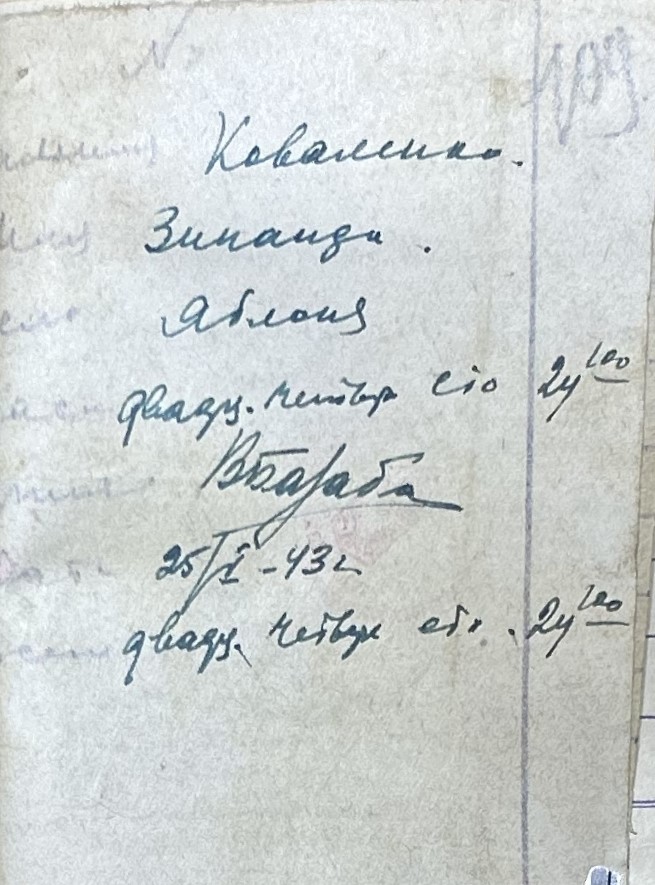 109
Коваленко.
Зинаида.
Яблоня
двадц. четыре сто 24 100
25/I-43г
двадц. четыре сто. 24 100